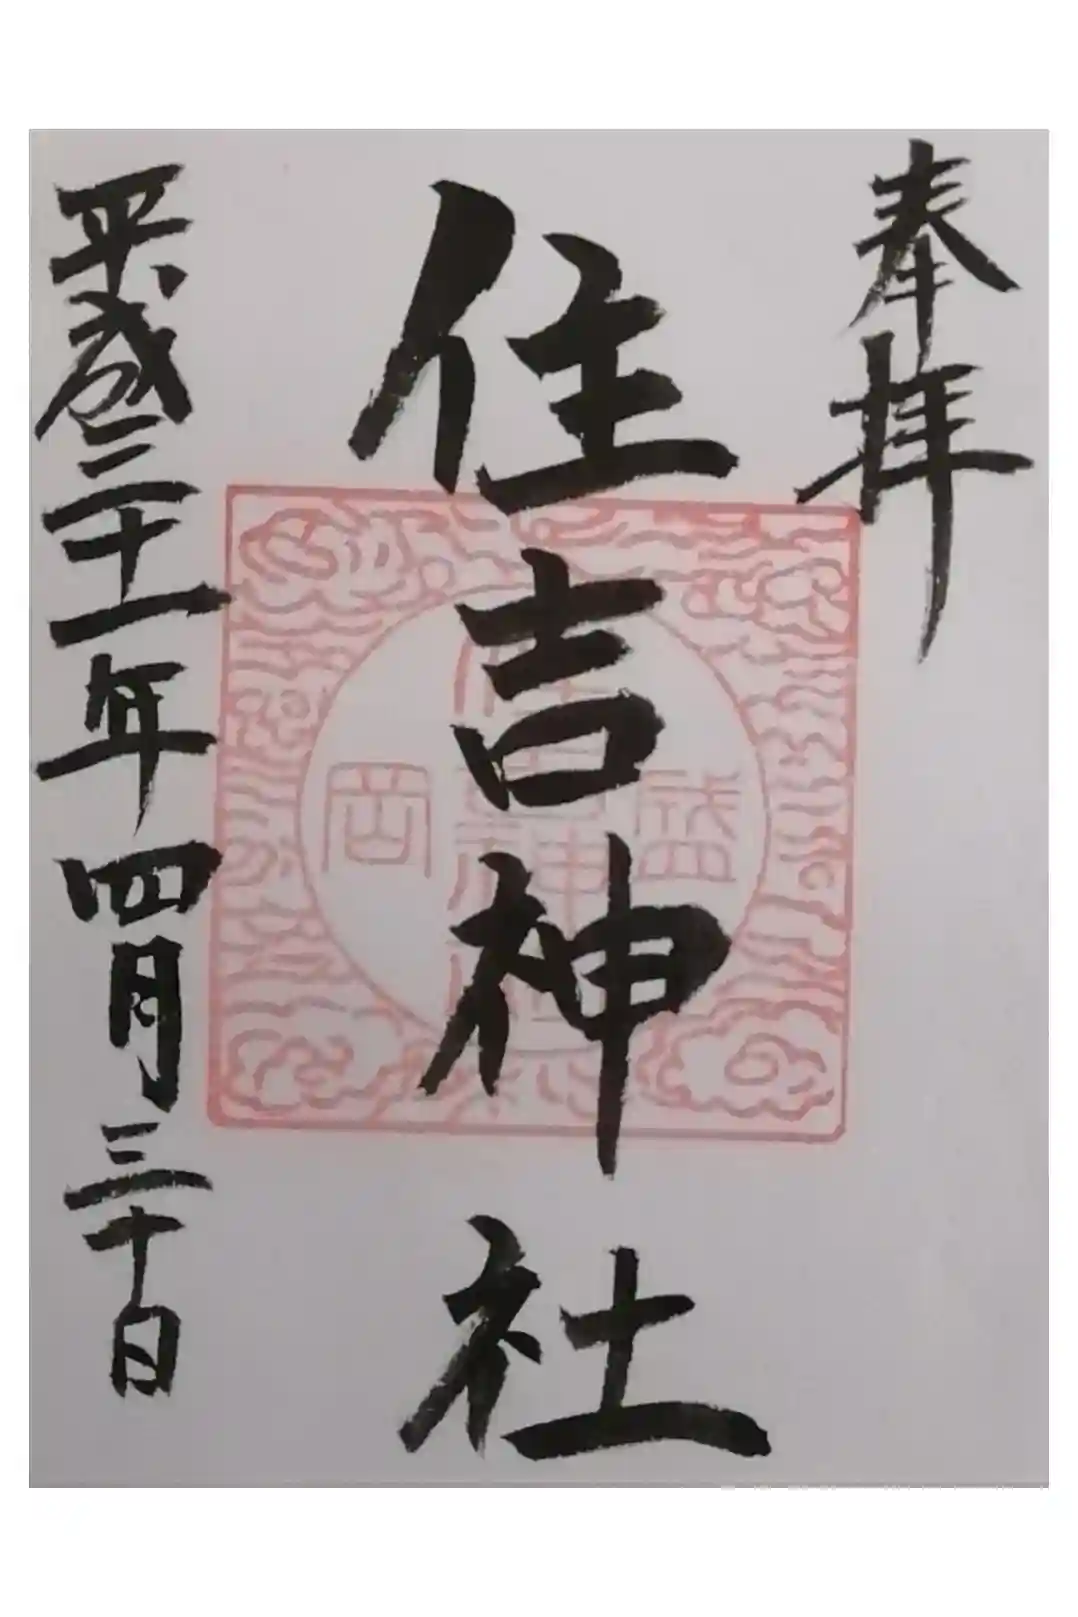 奉拝
住吉神社
盛岡
住吉神社
平成三十一年四月三十日